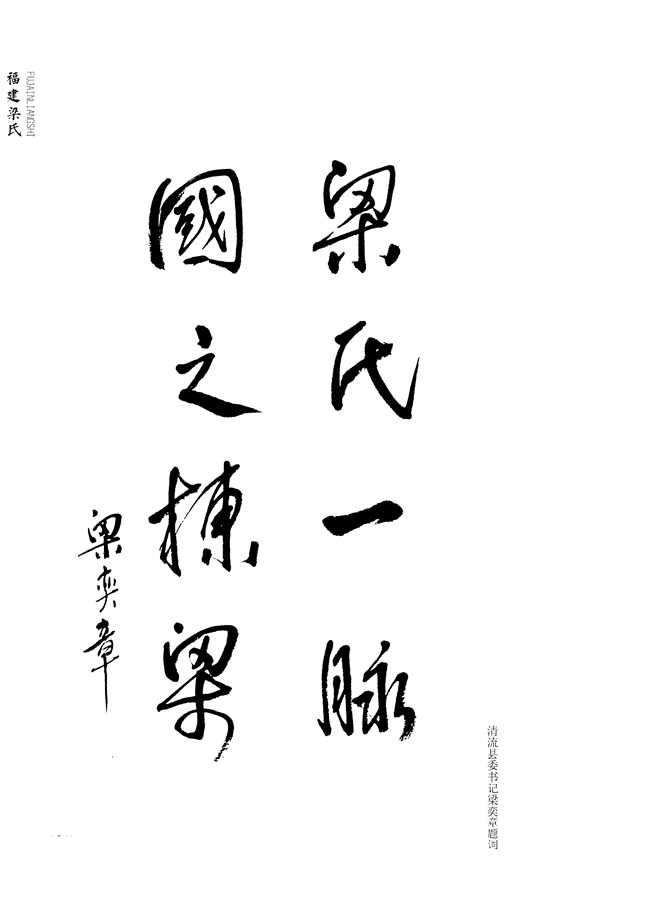 福建梁氏
FUJAINLIANGSHI
梁氏一脉
國之棟梁
梁奕章
清流县委书记梁奕章题词